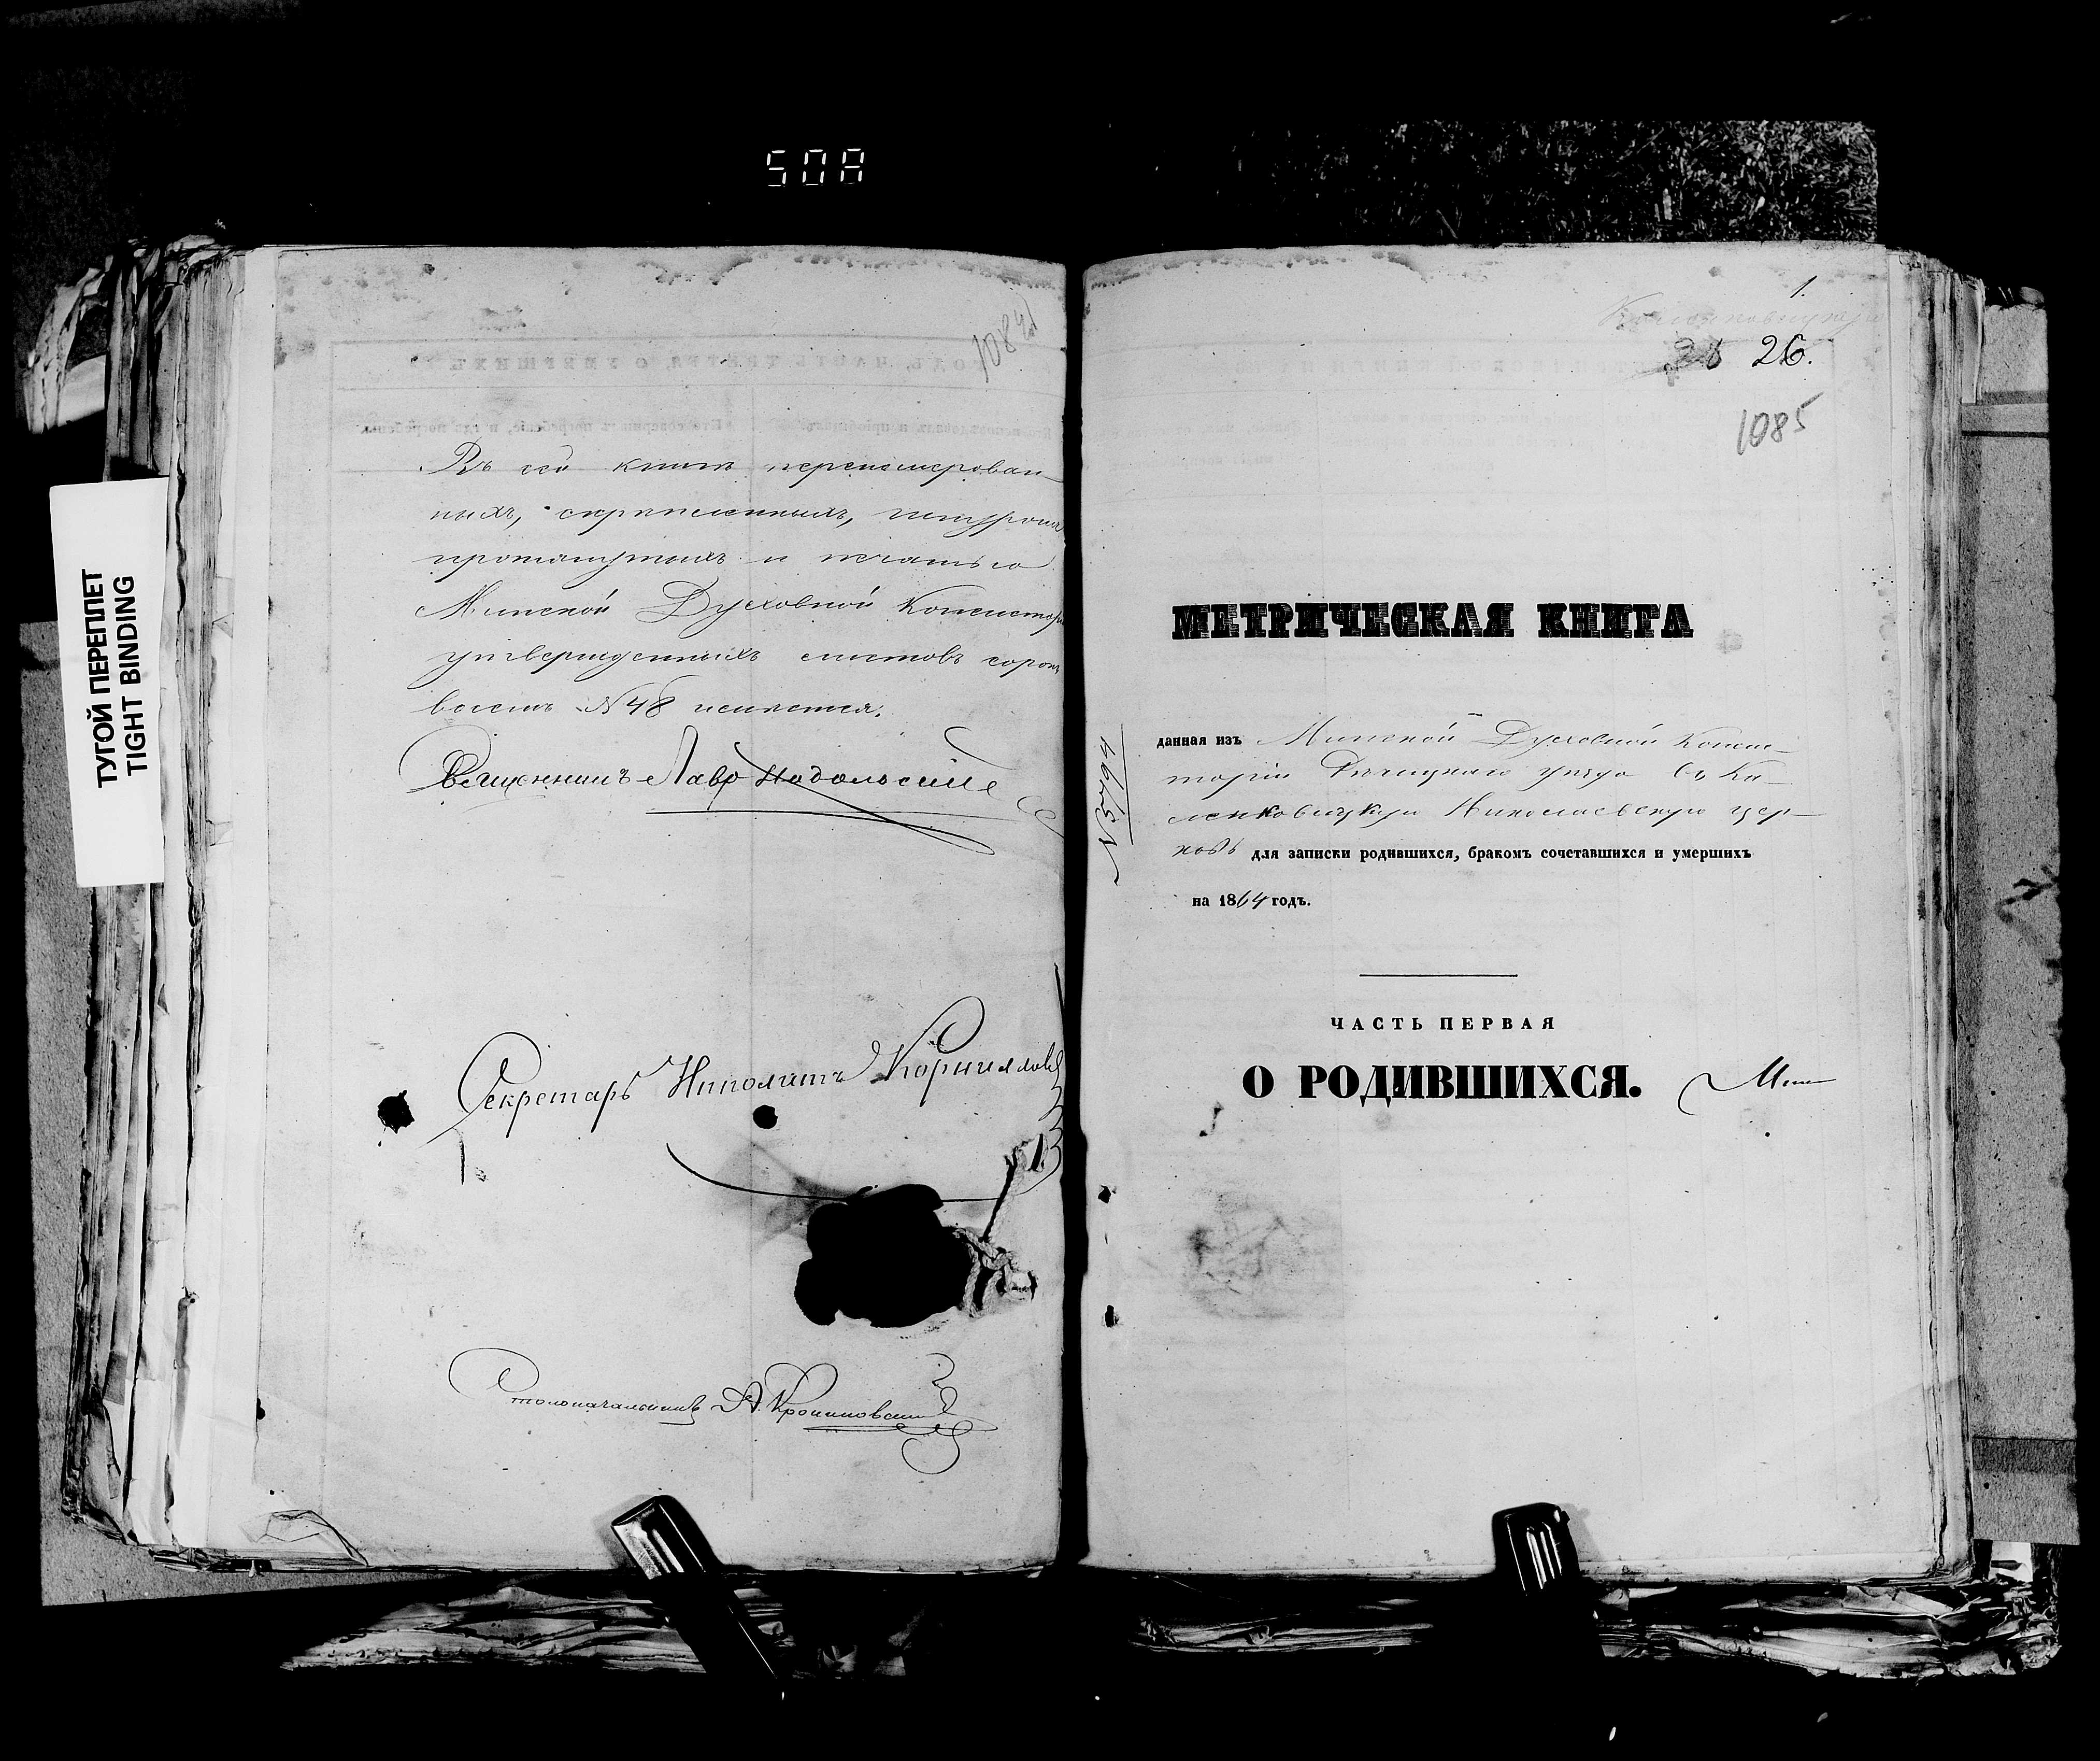 50A
ТУГОЙ ПЕРЕПЛЕТ
TIGHT BINDING
1084
Въ сей книгѣ перенумерован
ныхъ, скрѣпленныхъ, шнуромъ
протянутыхъ и печатью
Минской Духовной Консистор
утвержденныхъ листовъ сорокъ
восемь №48 имѣется.
Священникъ Лавр Подольскій
Секретарь Ипполитъ Корнилловъ
Столоначальникъ А.
1.
26.
1085
МЕТРИЧЕСКАЯ КНИГА
данная изъ Минской Духовной Конси-
торіи Рѣчицкаго уѣзда въ Ка-
ленковицкую Николаевскую цер-
ковь для записки родившихся, бракомъ сочетавшихся и умершихъ
на 1864 годъ.
ЧАСТЬ ПЕРВАЯ
О РОДИВШИХСЯ.
Мин